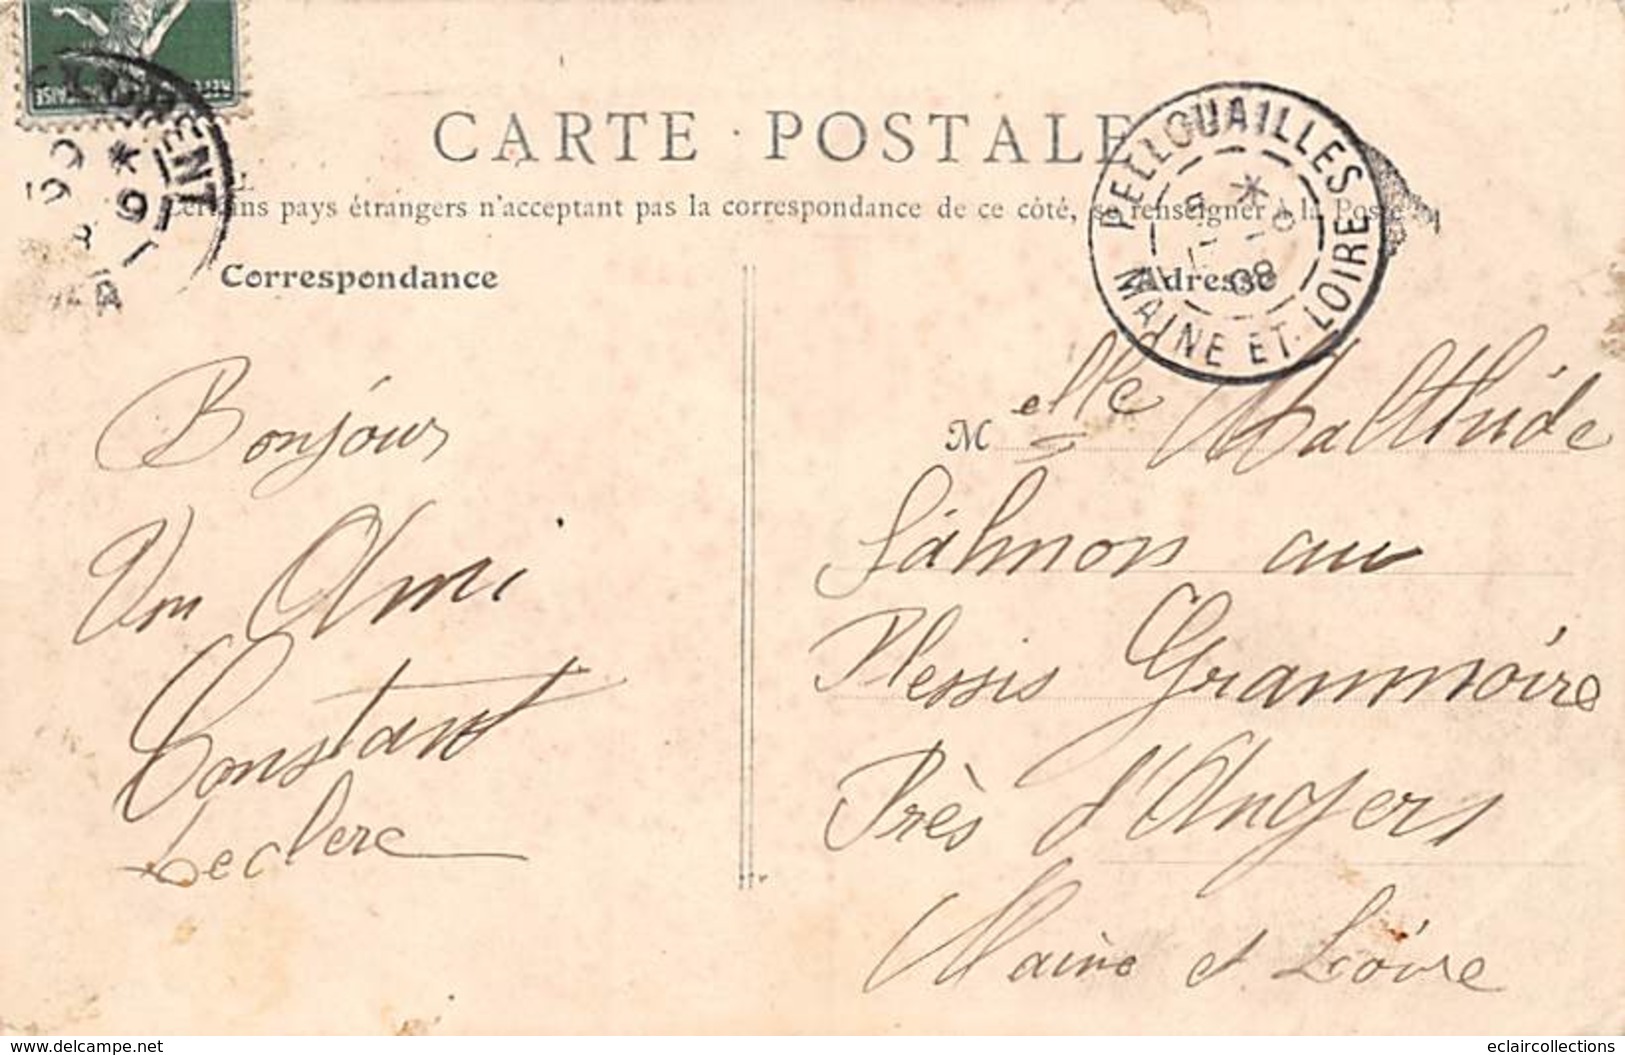 CARTE POSTALE
Certains pays étrangers n'acceptant pas la correspondance de ce côté, se renseigner à la Poste
Correspondance
Adresse
PELLOUAILLES
MAINE ET LOIRE
08
Bonjour
Un Ami
Constant
Leclerc
Melle Malthide
Salmon au
Plessis Grammoire
Près d'Angers
Maine et Loire
delcampe.net
eclaircollections